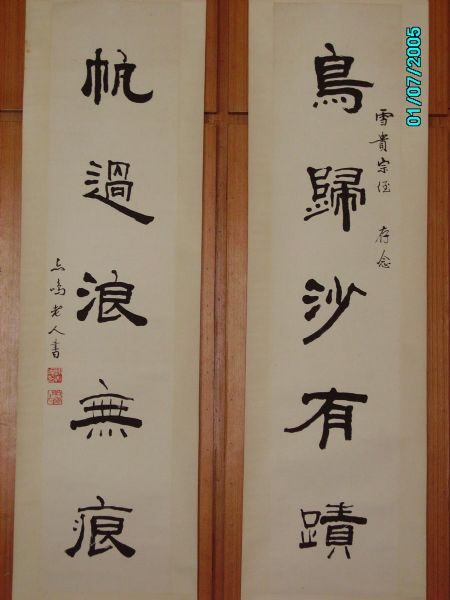 鳥歸沙有蹟
雪貴宗侄 存念
帆過浪無痕
老人書
01/07/2005